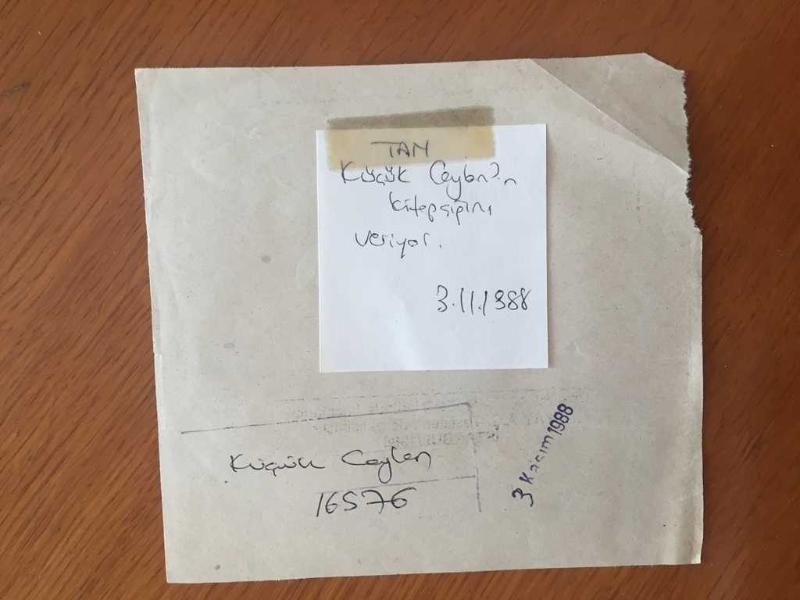 TAN
Küçük Ceylan'ın
kitapçığını
veriyor.
3.11.1988
Küçük Ceylan
16576
3 Kasım 1988